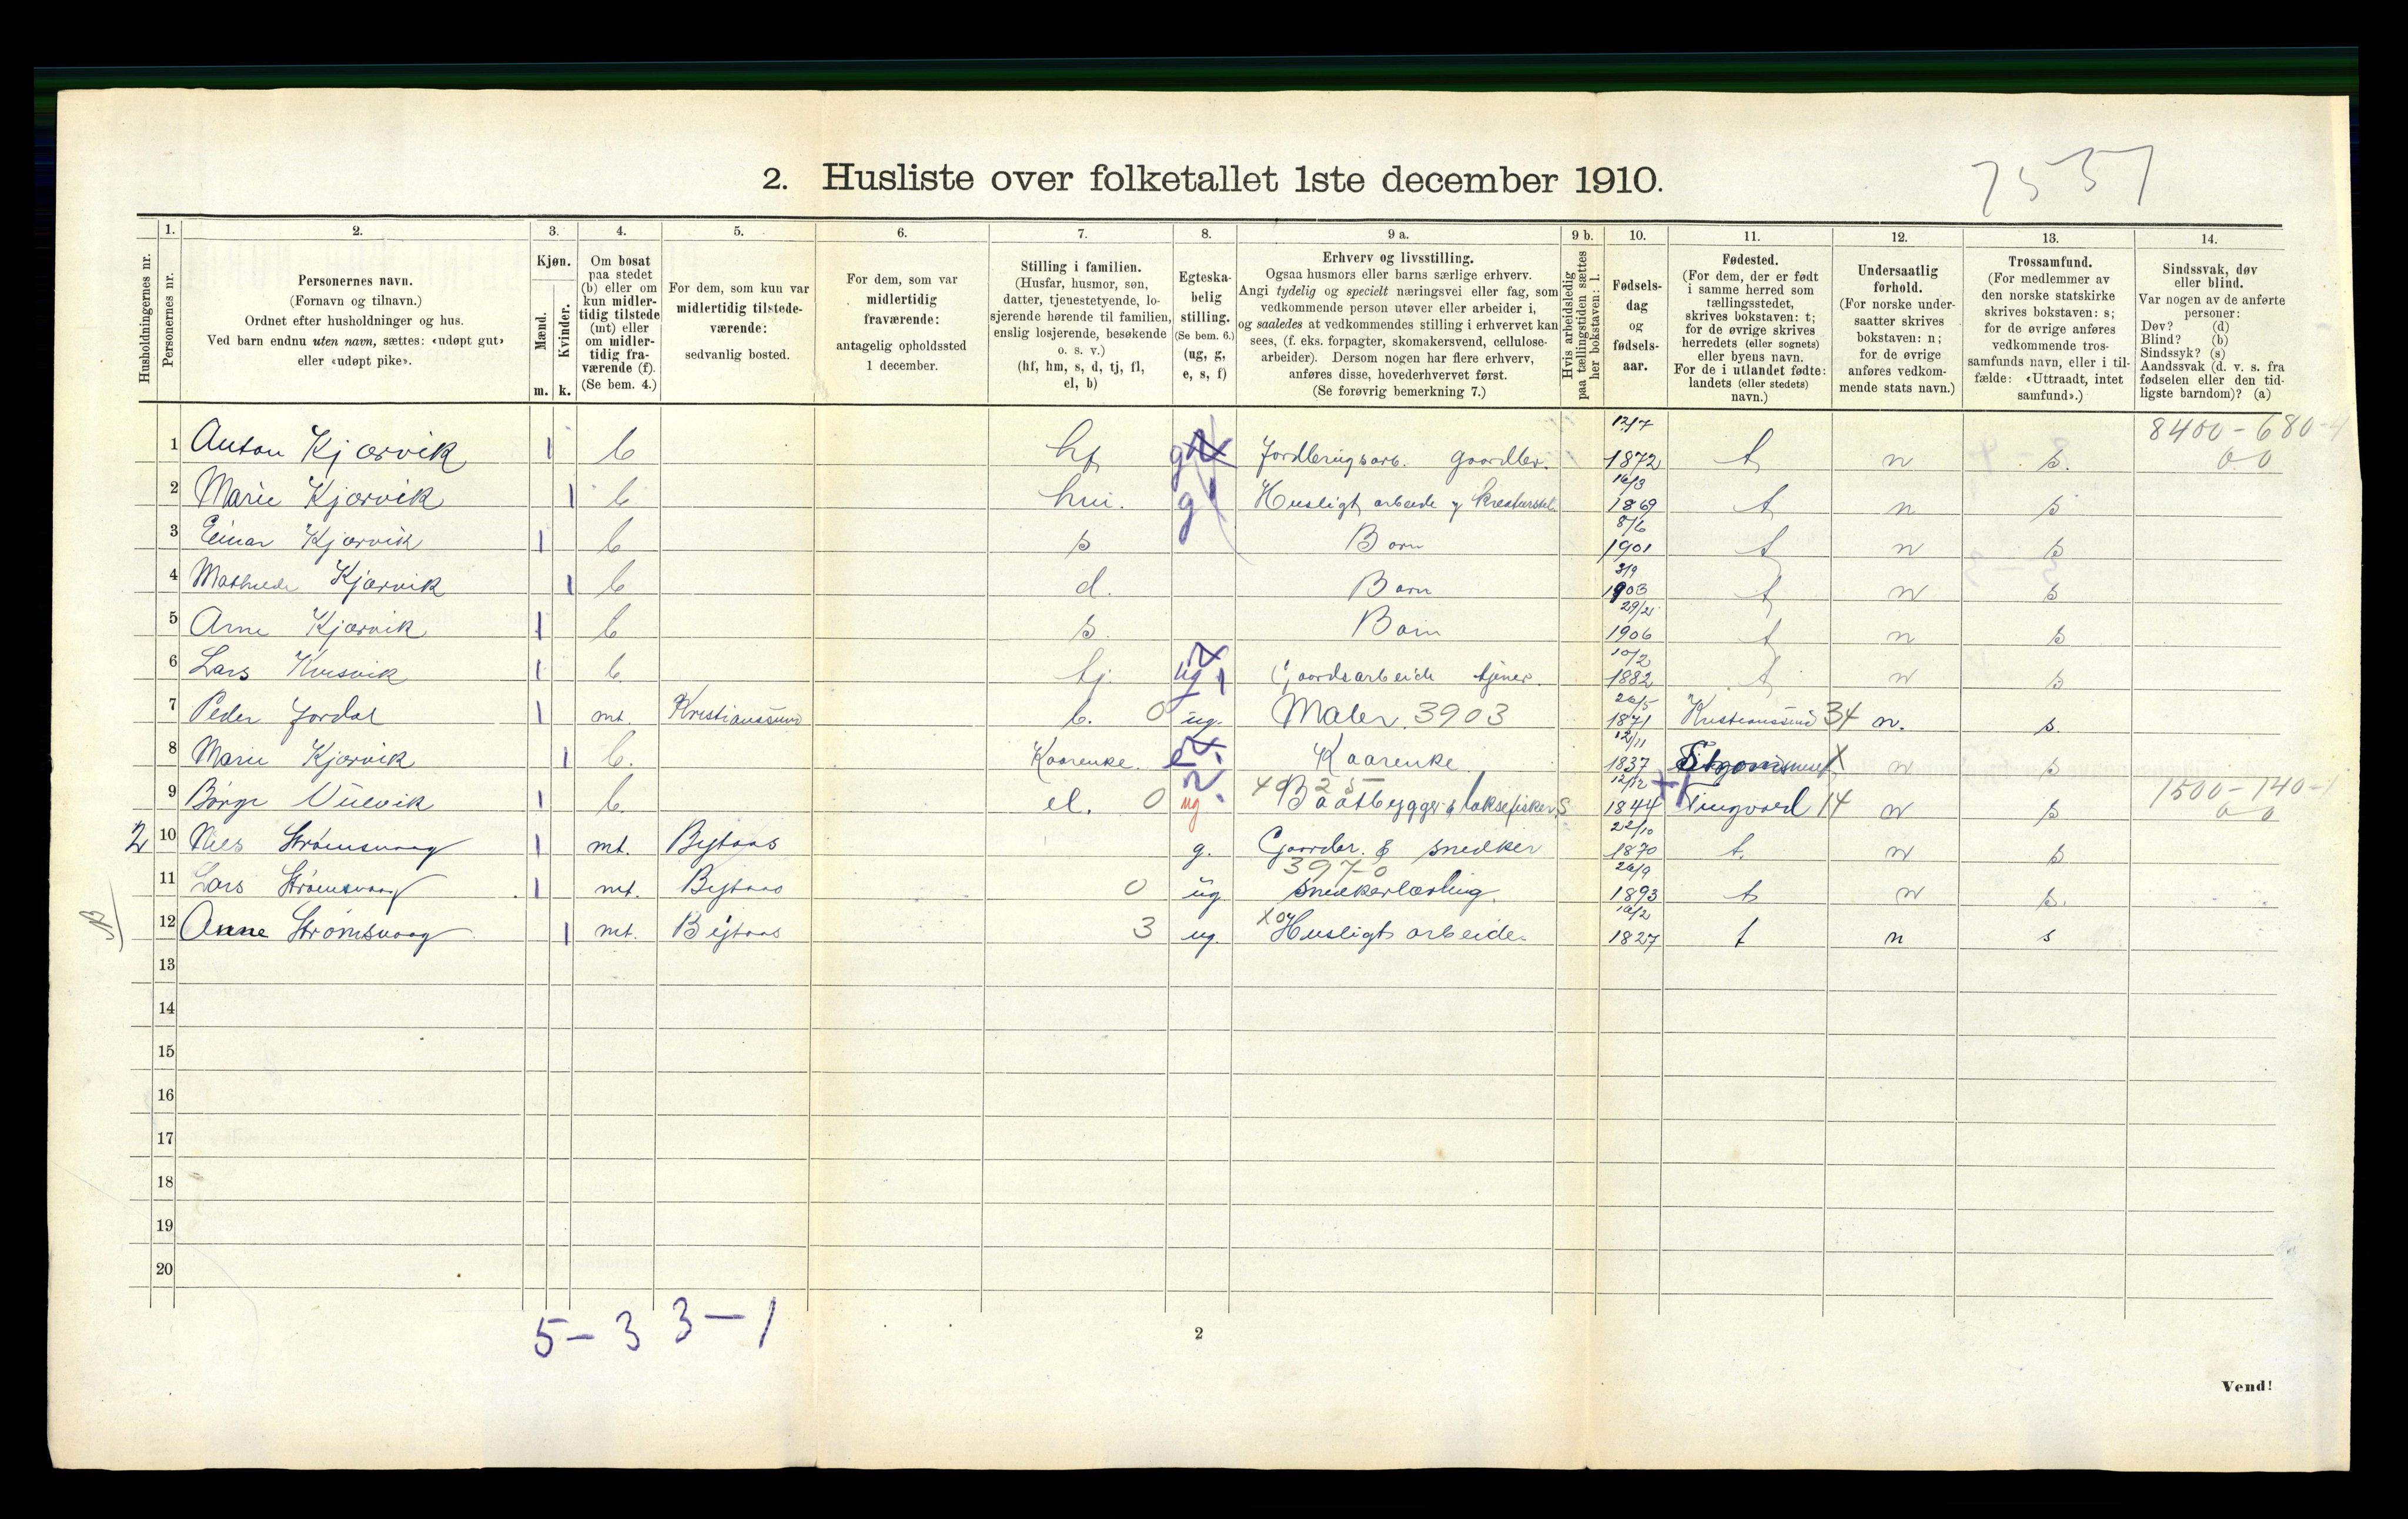 7557
2. Husliste over folketallet 1ste december 1910.
Husholdningernes nr.
1.
Personernes nr.
2.
Personernes navn.
(Fornavn og tilnavn.)
Ordnet efter husholdninger og hus.
Ved barn endnu uten navn, sættes: «udøpt gut»
eller «udøpt pike».
3.
Kjøn.
Mænd.
Kvinder.
m. k.
4.
Om bosat
paa stedet
(b) eller om
kun midler-
tidig tilstede
(mt) eller
om midler-
tidig fra-
værende (f).
(Se bem. 4.)
5.
For dem, som kun var
midlertidig tilstede-
værende:
sedvanlig bosted.
6.
For dem, som var
midlertidig
fraværende:
antagelig opholdssted
1 december.
7.
Stilling i familien.
(Husfar, husmor, søn,
datter, tjenestetyende, lo-
sjerende hørende til familien,
enslig losjerende, besøkende
o. s. v.)
(hf, hm, s, d, tj, fl,
el, b)
8.
Egteska-
belig
stilling.
(Se bem. 6.)
(ug, g,
e, s, f)
9 a.
Erhverv og livsstilling.
Ogsaa husmors eller barns særlige erhverv.
Angi tydelig og specielt næringsvei eller fag, som
vedkommende person utøver eller arbeider i,
og saaledes at vedkommendes stilling i erhvervet kan
sees, (f. eks. forpagter, skomakersvend, cellulose-
arbeider). Dersom nogen har flere erhverv,
anføres disse, hovederhvervet først.
(Se forøvrig bemerkning 7.)
9 b.
Hvis arbeidsledig
paa tællingstiden sættes
her bokstaven: l.
10.
Fødsels-
dag
og
fødsels-
aar.
11.
Fødested.
(For dem, der er født
i samme herred som
tællingsstedet,
skrives bokstaven: t;
for de øvrige skrives
herredets (eller sognets)
eller byens navn.
For de i utlandet fødte:
landets (eller stedets)
navn.)
12.
Undersaatlig
forhold.
(For norske under-
saatter skrives
bokstaven: n;
for de øvrige
anføres vedkom-
mende stats navn.)
13.
Trossamfund.
(For medlemmer av
den norske statskirke
skrives bokstaven: s;
for de øvrige anføres
vedkommende tros-
samfunds navn, eller i til-
fælde: «Uttraadt, intet
samfund».)
14.
Sindssvak, døv
eller blind.
Var nogen av de anførte
personer:
Døv? (d)
Blind? (b)
Sindssyk? (s)
Aandssvak (d. v. s. fra
fødselen eller den tid-
ligste barndom)? (a)
1 Anton Kjærvik 1 b hf g Jordbrugsarb. Gaardbr. 12/7 1872 t n s. 8400-680-4 0 0
2 Marie Kjærvik 1 b hm. g Husligt arbeide og kreaturstel 16/3 1869 t n s
3 Einar Kjærvik 1 b s Barn 8/6 1901 t n s
4 Mathilde Kjærvik 1 b d. Barn 3/9 1903 t n s
5 Arne Kjærvik 1 b s. Barn 29/21 1906 t n s
6 Lars Kvisvik 1 b tj. ug 1 Gaardsarbeide tjener. 10/2 1882 t n s
7 Peder Jordal 1 mt. Kristianssund b. 0 ug. Maler. 3903 26/5 1871 Kristianssund 34 n. s.
8 Marie Kjærvik 1 b. Kaarenke. e. Kaarenke 12/11 1837 X n s
9 Børge 1 b. el. 0 ug 4025 Baatbygger & laksefisker S 12/12 1844 Tingvoll 14 n s 1500-140-1 0 0
2 10 Nils Strømsvaag 1 mt. Bystaas g. Gaardbr. & snedker 22/10 1870 t. n s
11 Lars Strømsvaag 1 mt. Bystaas 0 ug 3970 snedkerlærling. 26/9 1893 t n s.
12 Anne Strømsvaag 1 mt. Bystaas 3 ug. Husligt arbeide. 16/2 1827 t n s
13
14
15
16
17
18
19
20
5 - 3 3 - 1
2
Vend!